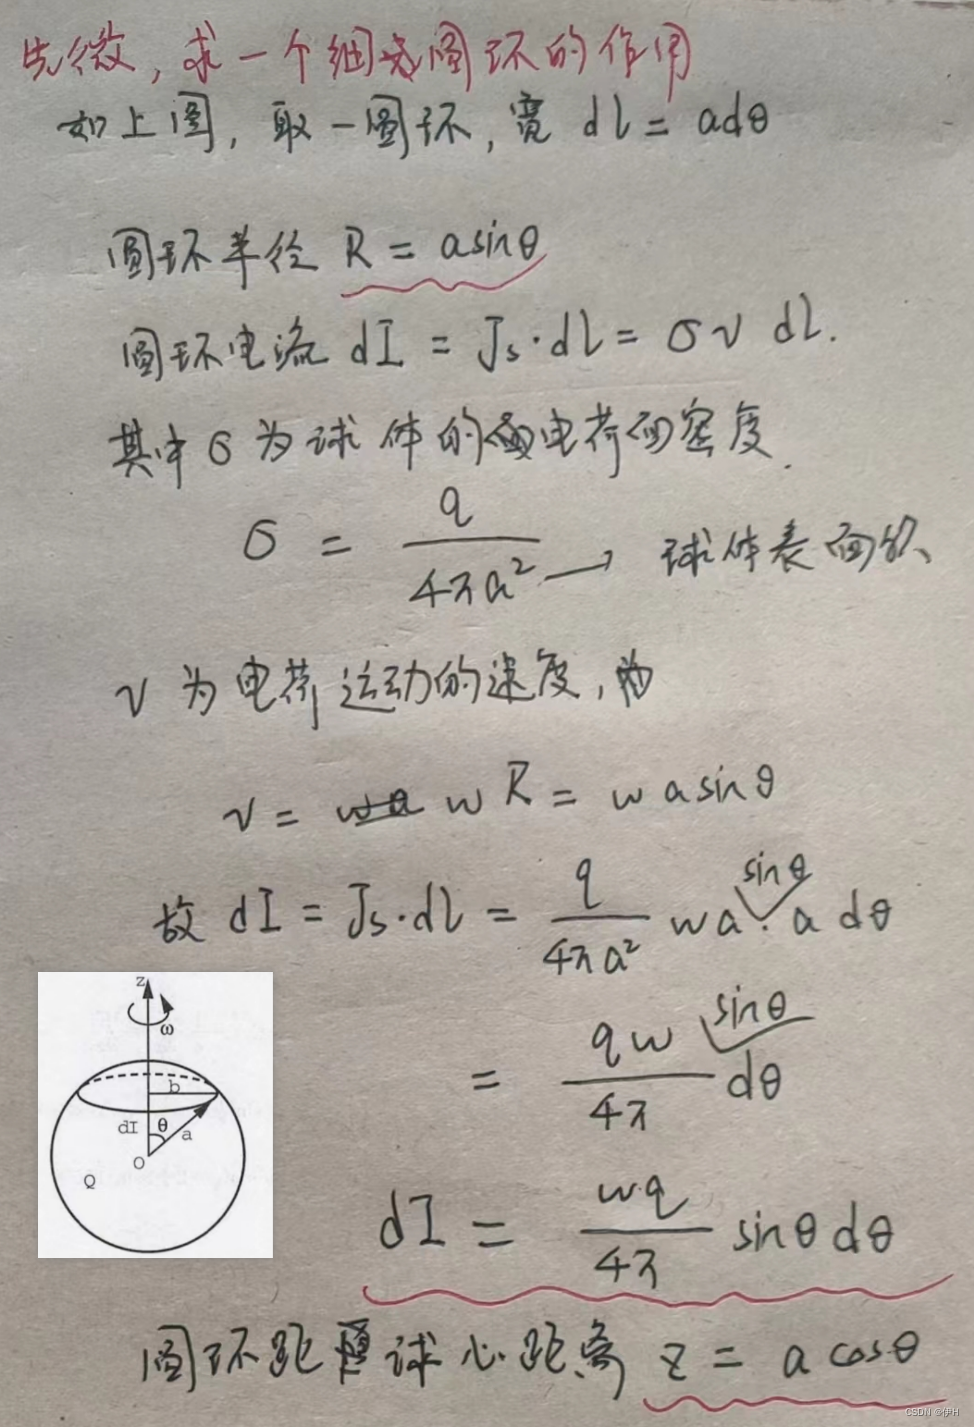 先微，求一个细窄圆环的作用
如上图，取一圆环，宽 dl = adθ
圆环半径 R = asinθ
圆环电流 dI = Js·dl = σv dl.
其中 σ 为球体的电荷面密度.
σ = q / 4πa² → 球体表面积
v 为电荷运动的速度，
v = wR = w a sinθ
故 dI = Js·dl = q / 4πa² wa sinθ · a dθ
= qw / 4π sinθ dθ
dI = wq / 4π sinθ dθ
圆环距球心距离 z = a cosθ
z
ω
b
dI θ a
O
Q
CSDN @伊H